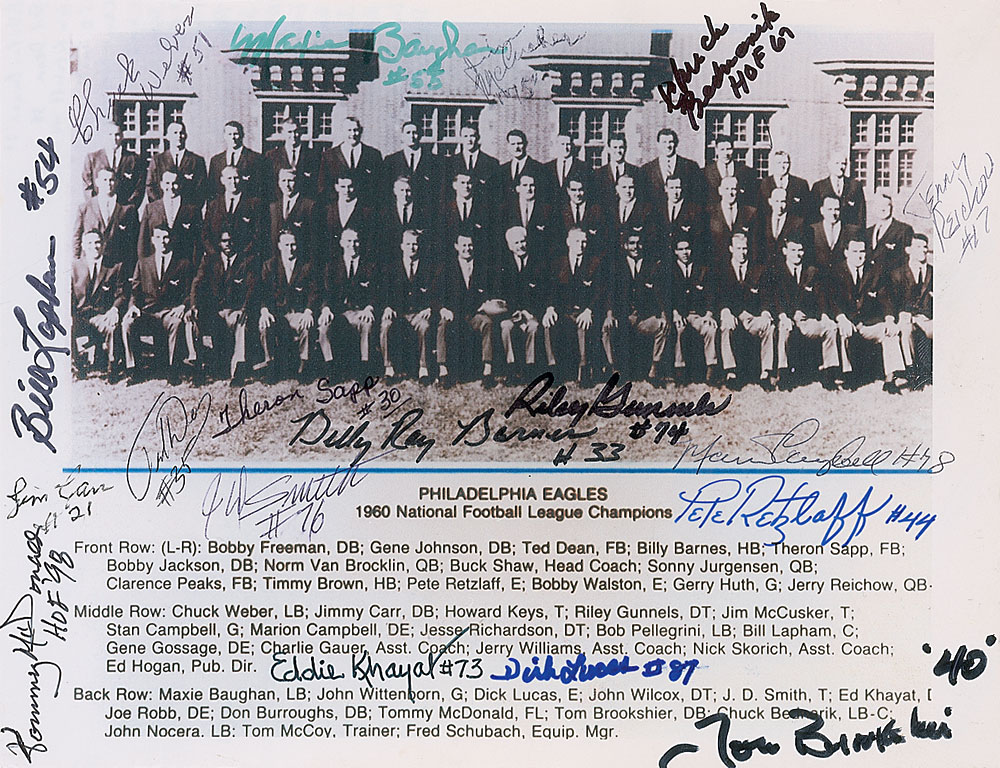 Chuck Weber #51
Maxie Baughan #55
Jim McCusker
Chuck Bednarik HOF 67
Jerry Reichow #17
Bill Lapham #54
Theron Sapp #30
Ted Dean #35
Billy Ray Barnes #33
Riley Gunnels #74
Marion Campbell #78
JD Smith #76
Jim Carr #21
Pete Retzlaff #44
Tommy McDonald HOF '98
PHILADELPHIA EAGLES
1960 National Football League Champions
Front Row: (L-R): Bobby Freeman, DB; Gene Johnson, DB; Ted Dean, FB; Billy Barnes, HB; Theron Sapp, FB;
Bobby Jackson, DB; Norm Van Brocklin, QB; Buck Shaw, Head Coach; Sonny Jurgensen, QB;
Clarence Peaks, FB; Timmy Brown, HB; Pete Retzlaff, E; Bobby Walston, E; Gerry Huth, G; Jerry Reichow, QB-
Middle Row: Chuck Weber, LB; Jimmy Carr, DB; Howard Keys, T; Riley Gunnels, DT; Jim McCusker, T;
Stan Campbell, G; Marion Campbell, DE; Jesse Richardson, DT; Bob Pellegrini, LB; Bill Lapham, C;
Gene Gossage, DE; Charlie Gauer, Asst. Coach; Jerry Williams, Asst. Coach; Nick Skorich, Asst. Coach;
Ed Hogan, Pub. Dir.
Eddie Khayat #73
Dick Lucas #87
Back Row: Maxie Baughan, LB; John Wittenborn, G; Dick Lucas, E; John Wilcox, DT; J. D. Smith, T; Ed Khayat, D
Joe Robb, DE; Don Burroughs, DB; Tommy McDonald, FL; Tom Brookshier, DB; Chuck Bednarik, LB-C;
John Nocera, LB; Tom McCoy, Trainer; Fred Schubach, Equip. Mgr.
"40"
Tom Brookshier